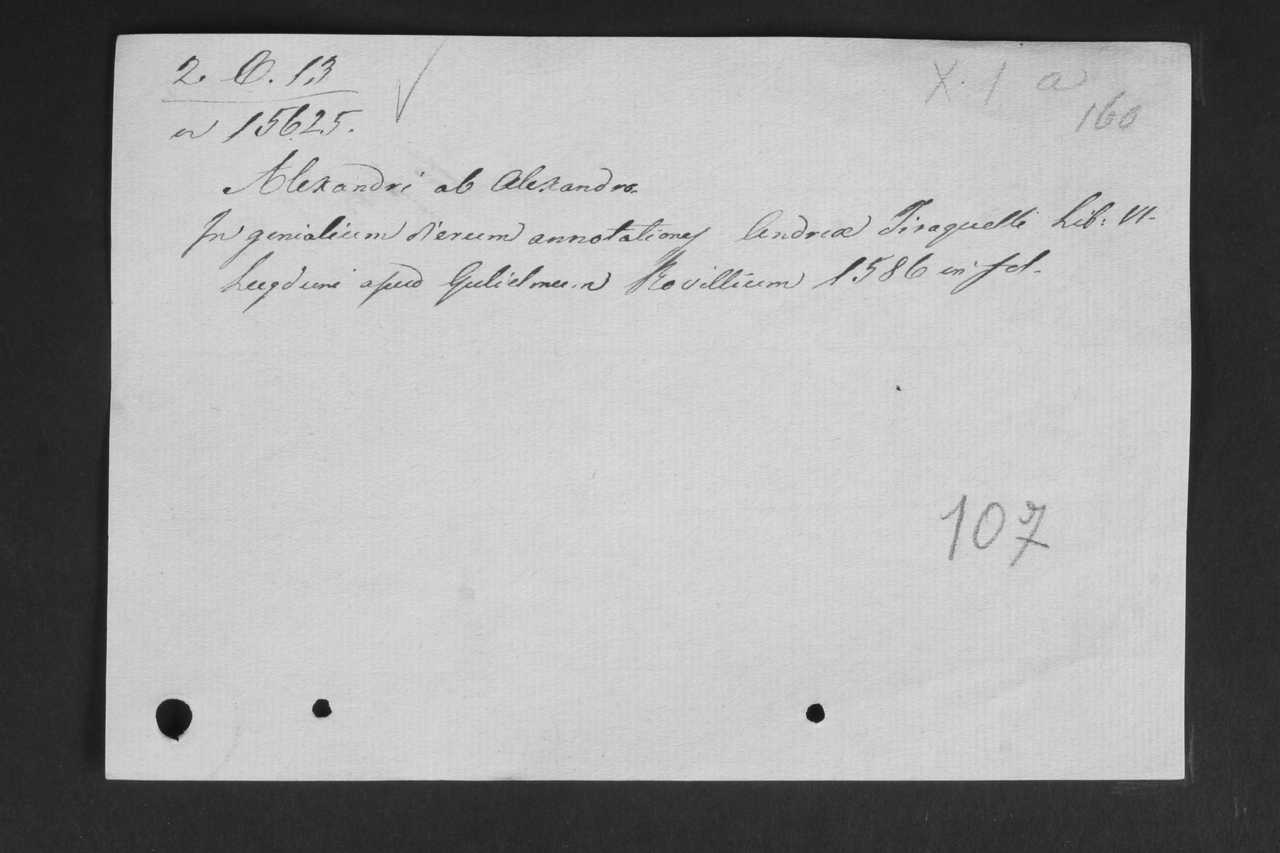 2. O. 13
X. 1 a
160
n 15625.
Alexandri ab Alexandro.
In genialium dierum annotationes Andreæ Tiraquelli Lib: VI.
Lugduni apud Gulielmum Rovillium 1586 in fol.
107